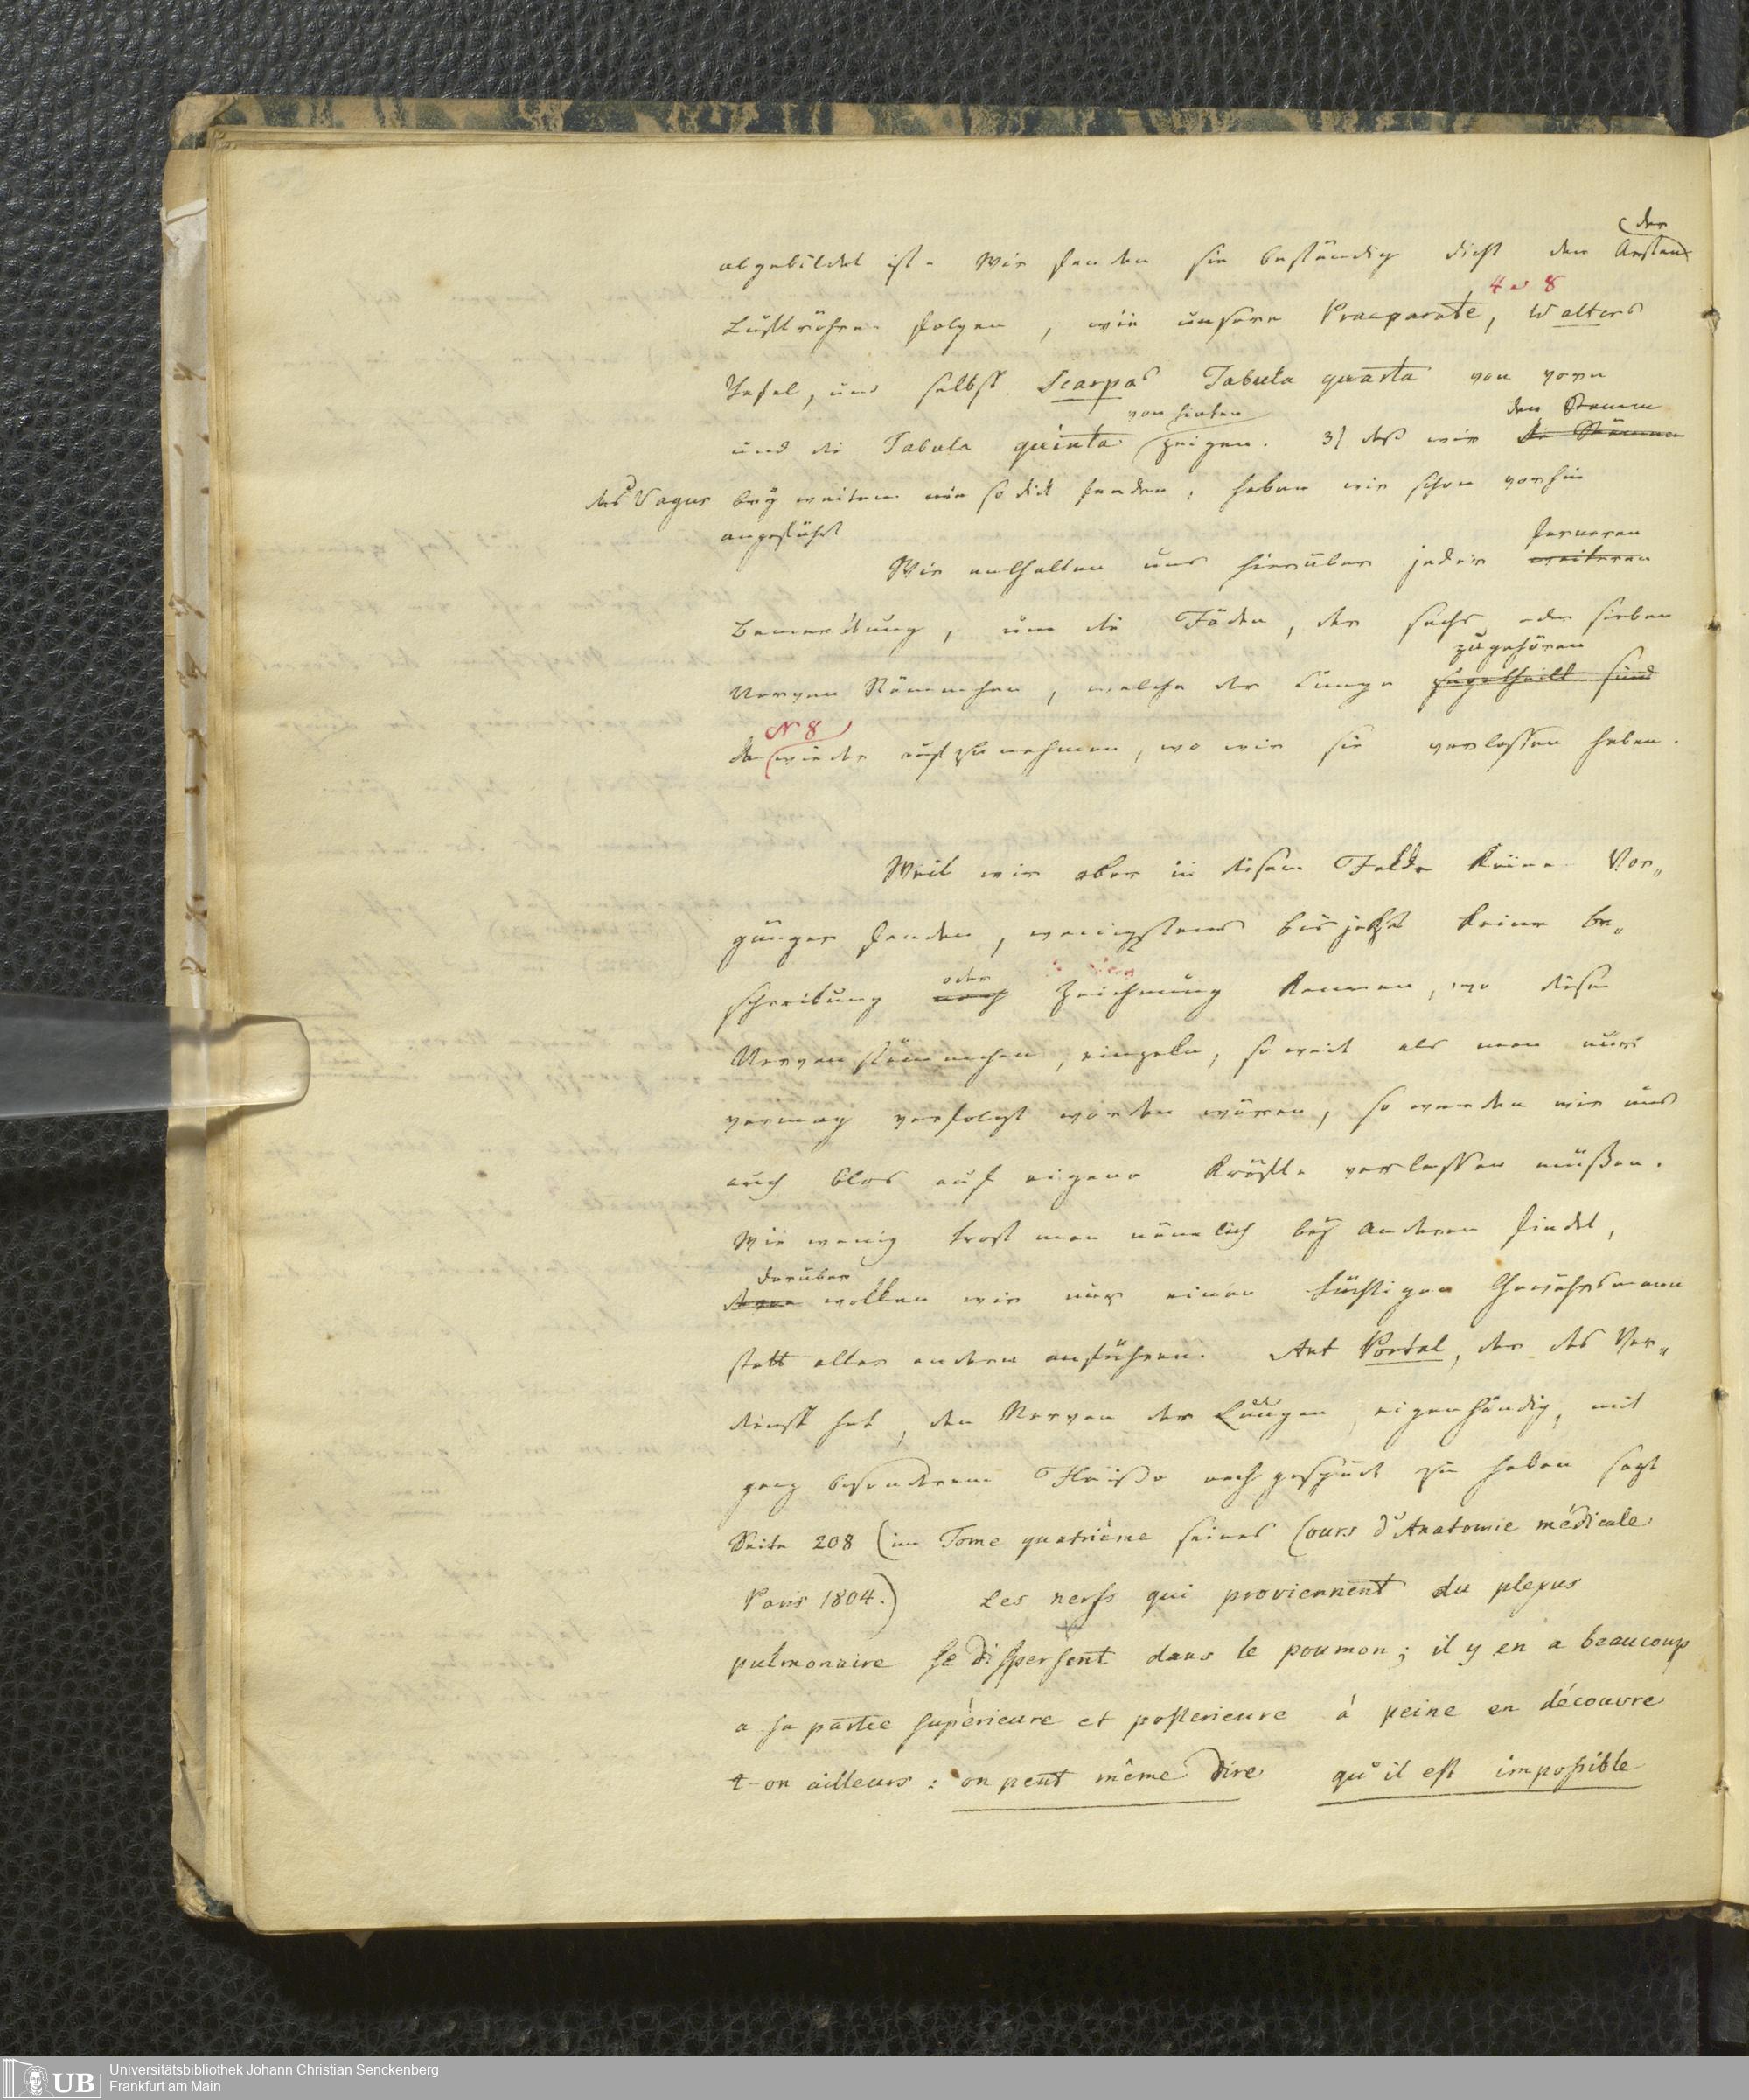 der
abgebildet ist. Wir fanden sie beständig dicht den Aesten
4 et 8
Luftröhren folgen, wie unsere Praeparate, Walters
Tafel, und selbst Scarpas Tabula quarta von vorn
von hinten den Stamm
und die Tabula quinta zeigen. 3) daß wir die Stämme
des Vagus bey weitem nie so dick fanden, haben wir schon vorhin
angeführt
ferneren
Wir enthalten uns hierüber jeder weiteren
Bemerkung, um die Fäden, der sechs oder sieben
zugehören
Nerven Stämmchen, welche der Lunge zugetheilt sind
N 8
da wieder aufzunehmen, wo wir sie verlassen haben.
Weil wir aber in diesem Felde keine Vor„
gänger fanden, wenigstens bis jetzt keine be„
oder
schreibung noch Zeichnung kennen, wo diese
Nervenstämmchen, einzeln, so weit als man nur
vermag verfolgt worden wären, so werden wir uns
auch blos auf eigene Kräfte verlassen müßen.
Wie wenig Trost man nämlich bey Anderen findet,
darüber
wollen wir nur einen tüchtigen Gewährsmann
statt aller andern anführen. Ant Portal, der das Ver„
dienst hat, den Nerven der Lungen eigenhändig, mit
ganz besonderem Fleiße nachgespürt zu haben sagt
Seite 208 (im Tome quatrième seines Cours d'Anatomie médicale
Paris 1804.) Les nerfs qui proviennent du plexus
pulmonaire se dispersent dans le poumon; il y en a beaucoup
a sa partie supèrieure et posterieure à peine en découvre
t-on ailleurs: on peut même dire qu'il est impossible
Universitätsbibliothek Johann Christian Senckenberg
Frankfurt am Main
UB